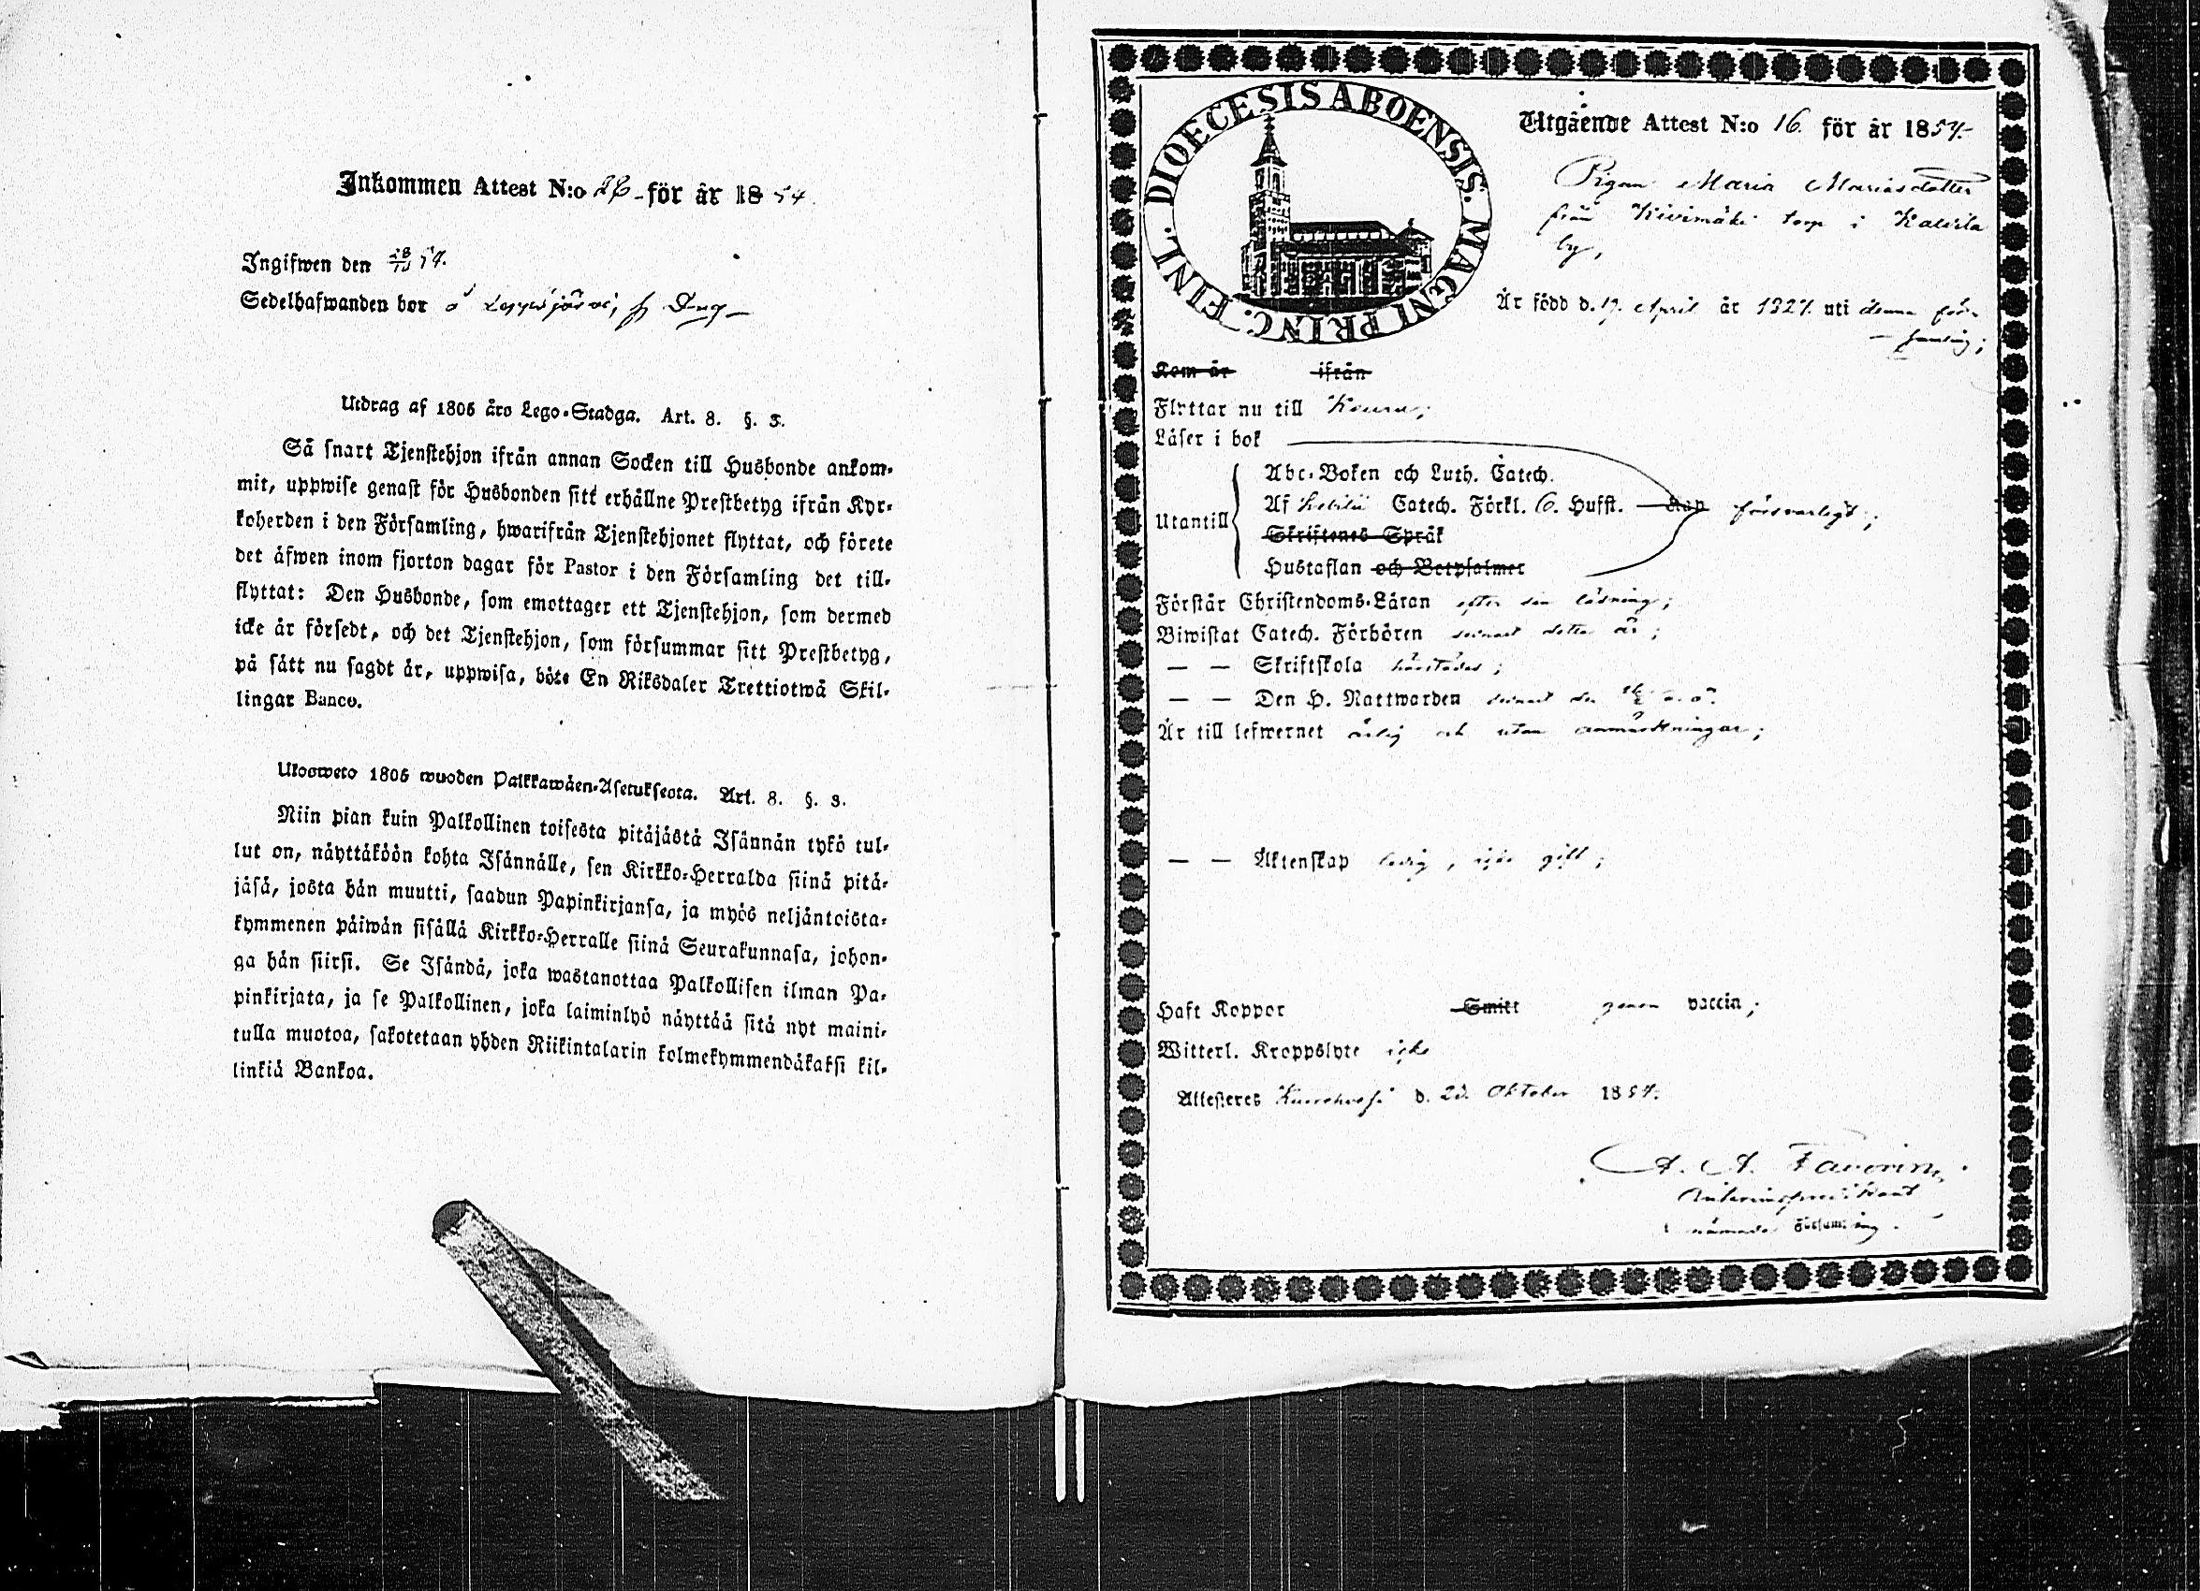 Inkommen Attest N:o för år 1854.
Ingifwen den 28/10 54.
Sedelhafwanden bor å Leppäjärvi,
Utdrag af 1805 års Lego-Stadga. Art. 8. §. 3.
Så snart Tjenstehjon ifrån annan Socken till Husbonde ankom-
mit, uppwise genast för Husbonden sitt erhållne Prestbetyg ifrån Kyr-
koherden i den Församling, hwarifrån Tjenstehjonet flyttat, och förete
det äfwen inom fjorton dagar för Pastor i den Församling det till-
flyttat: Den Husbonde, som emottager ett Tjenstehjon, som dermed
icke är försedt, och det Tjenstehjon, som försummar sitt Prestbetyg,
på sätt nu sagdt är, uppwisa, böte En Riksdaler Trettiotwå Skil-
lingar Banco.
Ulosweto 1805 wuoden Palkkawäen-Asetuksesta. Art. 8. §. 3.
Niin pian kuin Palkollinen toisesta pitäjästä Isännän tykö tul-
lut on, näyttäköön kohta Isännälle, sen Kirkko-Herralda siinä pitä-
jäsä, josta hän muutti, saadun Papinkirjansa, ja myös neljäntoista-
kymmenen päiwän sisällä Kirkko-Herralle siinä Seurakunnasa, johon-
ga hän siirsi. Se Isändä, joka wastanottaa Palkollisen ilman Pa-
pinkirjata, ja se Palkollinen, joka laiminlyö näyttää sitä nyt maini-
tulla muotoa, sakotetaan yhden Riikintalarin kolmekymmendäkaksi kil-
linkiä Bankoa.
DIOECESIS ABOENSIS. MAGNI PRINC. FINL.
Utgående Attest N:o 16. för år 1854.
Pigan Maria Mariasdotter
från Kivimäki torp i Kalvila
by,
Är född d. 19. April år 1827. uti denna för-
samling;
Kom år ifrån
Flyttar nu till
Läser i bok
Abc-Boken och Luth. Catech.
Utantill Af Catech. Förkl. 6. Hufst. Kap försvarligt;
Skriftenes Språk
Hustaflan och Botpsalmer
Förstår Christendoms-Läran efter sin läsning;
Biwistat Catech. Förhören senast detta år;
— — Skriftskola härstädes;
— — Den H. Nattwarden senast den
Är till lefwernet ärlig och utan anmärkningar;
— — Äktenskap ledig, icke gift;
Haft Koppor Smitt genom vaccin;
Witterl. Kroppslyte icke
Attesteres d. 23. Oktober 1854.
A. A. Favorin,
nämnde Församling.